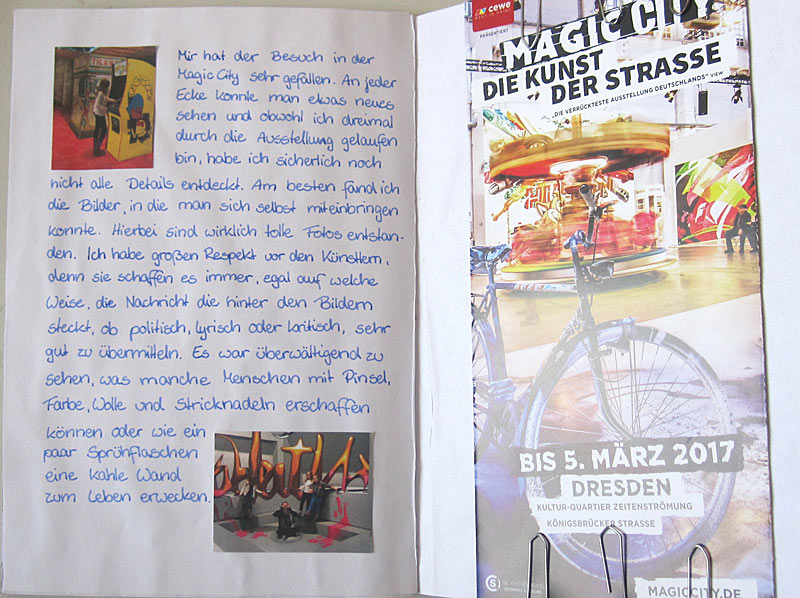 Mir hat der Besuch in der
Magic City sehr gefallen. An jeder
Ecke konnte man etwas neues
sehen und obwohl ich dreimal
durch die Ausstellung gelaufen
bin, habe ich sicherlich noch
nicht alle Details entdeckt. Am besten fand ich
die Bilder, in die man sich selbst miteinbringen
konnte. Hierbei sind wirklich tolle Fotos entstan-
den. Ich habe großen Respekt vor den Künstlern,
denn sie schaffen es immer, egal auf welche
Weise, die Nachricht die hinter den Bildern
steckt, ob politisch, lyrisch oder kritisch, sehr
gut zu übermitteln. Es war überwältigend zu
sehen, was manche Menschen mit Pinsel,
Farbe, Wolle und Stricknadeln erschaffen
können oder wie ein
paar Sprühflaschen
eine kahle Wand
zum Leben erwecken.
cewe
BEST IN PRINT
PRÄSENTIERT
MAGIC CITY
DIE KUNST
DER STRASSE
„DIE VERRÜCKTESTE AUSSTELLUNG DEUTSCHLANDS“ VIEW
BIS 5. MÄRZ 2017
DRESDEN
KULTUR-QUARTIER ZEITENSTRÖMUNG
KÖNIGSBRÜCKER STRASSE
MAGICCITY.DE